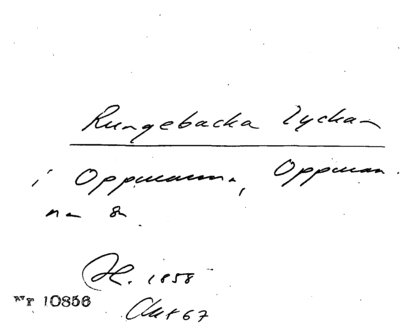 Rungebacka Lyckan
i Oppmanna, Oppman-
na sn.
H. 1858
Akt 67
Nr 10856